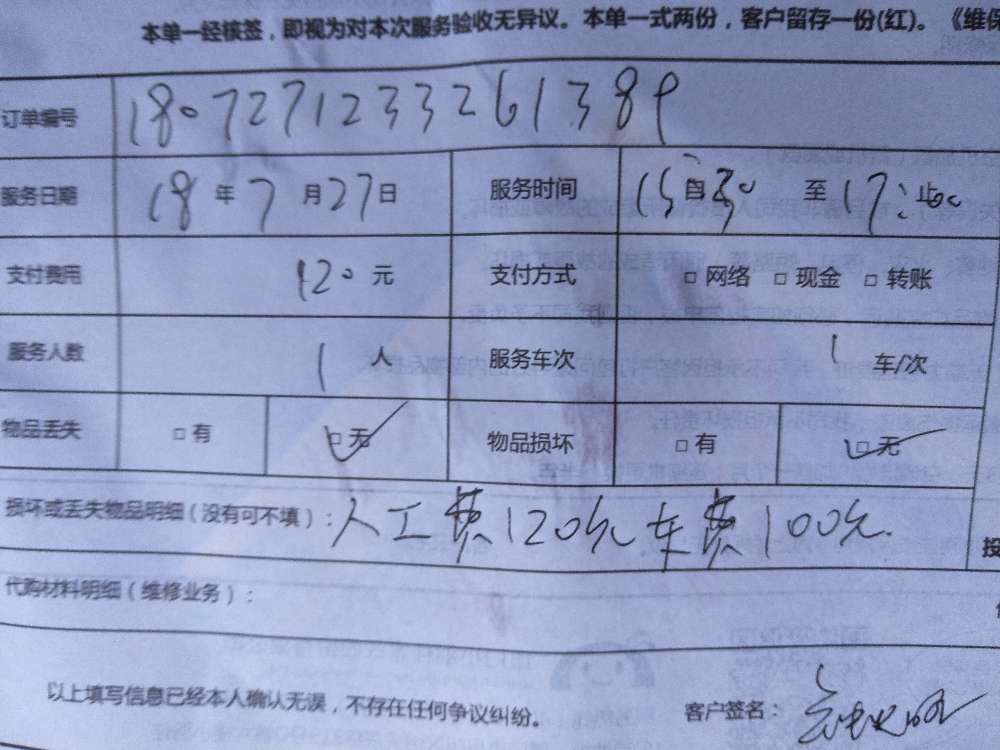 本单一经核签，即视为对本次服务验收无异议。本单一式两份，客户留存一份(红)。《维保
订单编号 1807271233261389
服务日期 18 年 7 月 27 日 服务时间 15 自 30 至 17:00
支付费用 120 元 支付方式 □ 网络 □ 现金 □ 转账
服务人数 1 人 服务车次 1 车/次
物品丢失 □ 有 □ 无 物品损坏 □ 有 □ 无
损坏或丢失物品明细（没有可不填）：人工费120元车费100元.
投
代购材料明细（维修业务）：
以上填写信息已经本人确认无误，不存在任何争议纠纷。 客户签名：